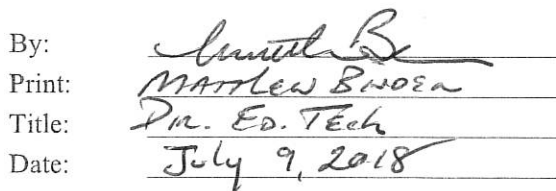 By:
Print: MATTHEW BINDER
Title: DIR. ED. TECH
Date: July 9, 2018